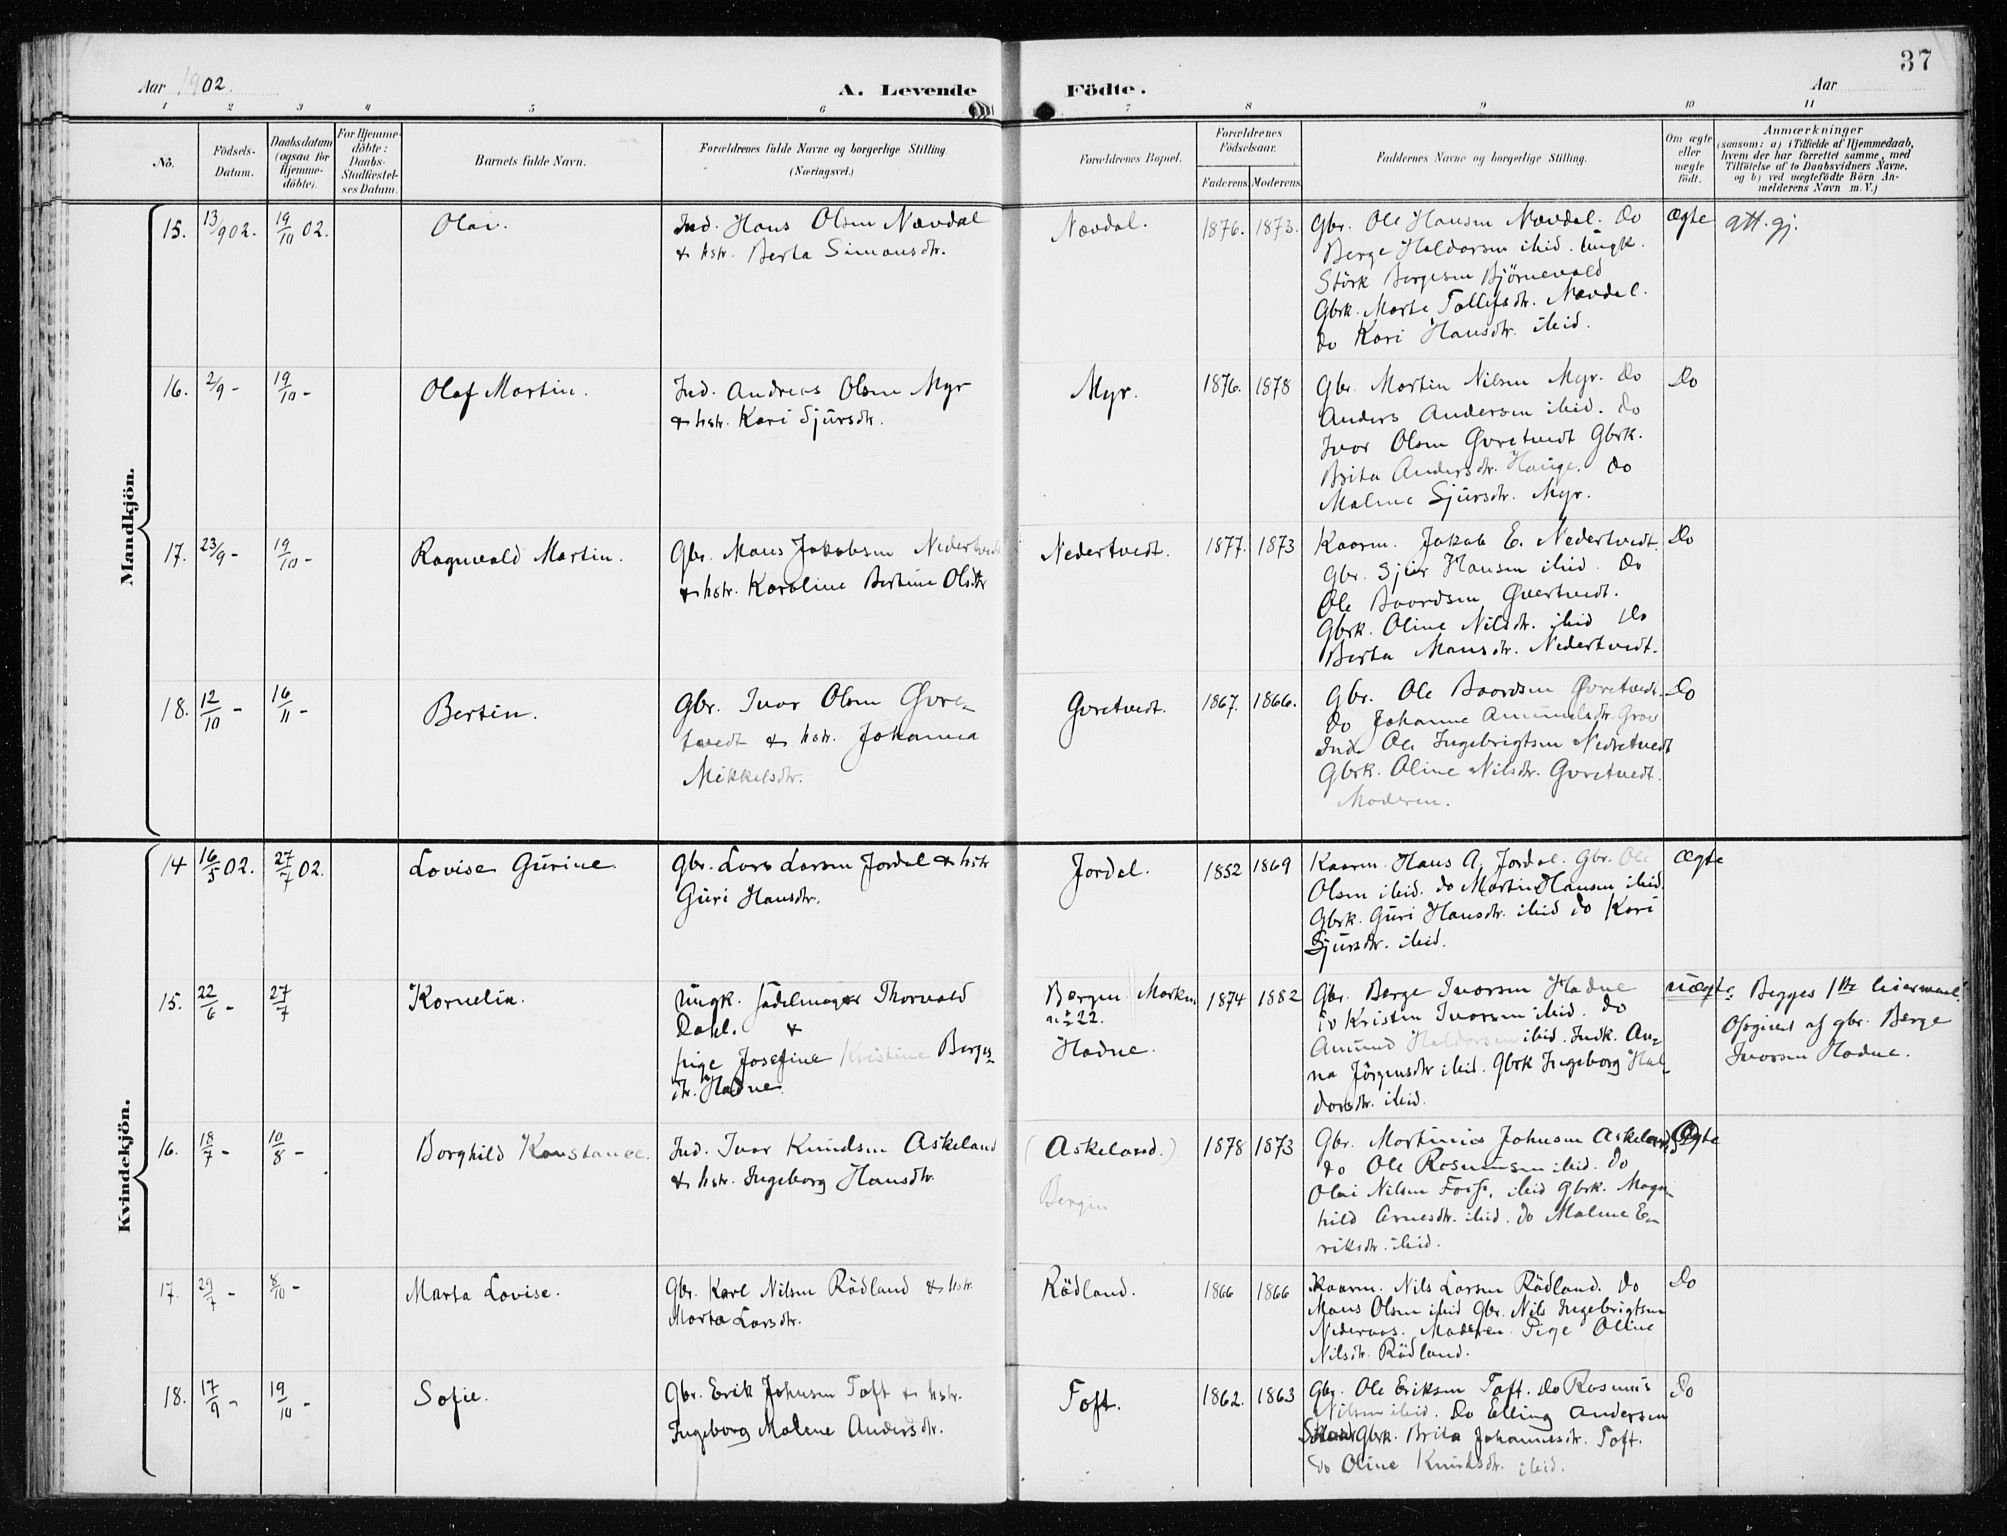 37
Aar 1902.
A. Levende Födte.
Aar
1 2 3 4 5 6 7 8 9 10 11
No.
Födsels-Datum.
Daabsdatum (ogsaa for Hjemme-döbte).
For Hjemme-döbte: Daabs-Stadfæstel-ses Datum.
Barnets fulde Navn.
Forældrenes fulde Navne og borgerlige Stilling.
(Næringsvei.)
Forældrenes Bopæl.
Forældrenes Födselsaar.
Faderens. Moderens.
Faddernes Navne og borgerlige Stilling.
Om ægte eller uægte födt.
Anmærkninger
(saasom: a) i Tilfælde af Hjemmedaab,
hvem der har forrettet samme, med
Tilföielse af to Daabsvidners Navne,
og b) ved uægtefödte Börn An-
melderens Navn m. V.)
Mandkjön.
15. 13/9 02. 19/10 02. Olai. Ind. Hans Olsen Nævdal
& hstr. Berta Simonsdtr.
Nævdal. 1876. 1873.
Gbr. Ole Hansen Nævdal. do
Berge Haldorsen ibid. Ungk.
Störk Bergesen Bjørnevald
Gbrk. Marta Tollefsdtr. Nævdal.
do Kari Hansdtr. ibid.
ægte att. gj.
16. 2/9 - 19/10 - Olaf Martin. Ind. Andreas Olsen Myr
& hstr. Kari Sjursdtr.
Myr. 1876. 1878
Gbr. Martin Nilsen Myr. do
Anders Andersen ibid. do
Ivar Olsen Øvretvedt Gbrk.
Brita Andersdtr. Hauge. do
Malene Sjursdtr. Myr.
Do
17. 23/9 - 19/10 - Ragnvald Martin. Gbr. Mons Jakobsen Nedertvedt
& hstr. Karoline Bertine Olsdtr
Nedertvedt. 1877. 1873
Kaarm. Jakob E. Nedertvedt.
Gbr. Sjur Hansen ibid. do
Ole Baardsen Øvertvedt.
Gbrk. Oline Nilsdtr. ibid do
Berta Monsdtr. Nedertvedt.
Do
18. 12/10 - 16/11 - Bertin. Gbr. Ivar Olsen Øvre-
tvedt & hstr. Johanna
Mikkelsdtr.
Øvretvedt. 1867. 1866.
Gbr. Ole Baardsen Øvretvedt.
do Johanne Amundsdtr.
Ind. Ole Ingebrigtsen Nedretvedt
Gbrk. Oline Nilsdtr. Øvretvedt.
Moderen.
Do
Kvindekjön.
14 16/5 02. 27/7 02. Lovise Gurine. Gbr. Lars Larsen Jordal & hstr
Guri Hansdtr.
Jordal. 1852 1869
Kaarm. Hans A. Jordal. Gbr. Ole
Olsen ibid. do Martin Hansen ibid.
Gbrk. Guri Hansdtr. ibid do Kari
Sjursdtr. ibid.
Ægte
15. 22/6 - 27/7 Kornelia. Ungk. sadelmager Thorvald
Dahl. &
pige Josefine Kristine Berges-
dtr. Hadne
Bergen Marken
no 22.
Hadne.
1874 1882
Gbr. Berge Ivarsen Hadne
do Kristen Ivarsen ibid. do
Amund Haldorsen ibid. Indk. An-
na Jörgensdtr ibid. Gbrk Ingeborg Hal-
dorsdtr. ibid.
uægte. Begges 1ste leiermaal.
Opgivet af gbr. Berge
Ivarsen Hadne.
16. 18/7 - 10/8 - Borghild Konstance. Ind. Ivar Knudsen Askeland
& hstr. Ingeborg Hansdtr.
(Askeland.)
Bergen
1878 1873
Gbr. Martinius Johnsen Askeland
do Ole Rasmussen ibid. do
Olai Nilsen Foss, ibid Gbrk. Magn-
hild Arnesdtr. ibid. do Malene E-
riksdtr. ibid.
Ægte
17. 29/7 - 8/10 - Marta Lovise. Gbr. Karl Nilsen Rödland & hstr.
Marta Larsdtr.
Rödland. 1866 1866
Kaarm. Nils Larsen Rödland. do
Mons Olsen ibid Gbr. Nils Ingebrigtsen
Nederaas. Moderen. Pige Oline
Nilsdtr. Rödland.
Do
18. 17/9 - 19/10 - Sofie. Gbr. Erik Johnsen Toft & hstr.
Ingeborg Malene Andersdtr.
Toft. 1862. 1863
Gbr. Ole Eriksen Toft. do Rasmus
Nilsen ibid. do Elling Andersen
Gbrk. Brita Johannesdtr. Toft.
do Oline Knudsdtr. ibid.
Do